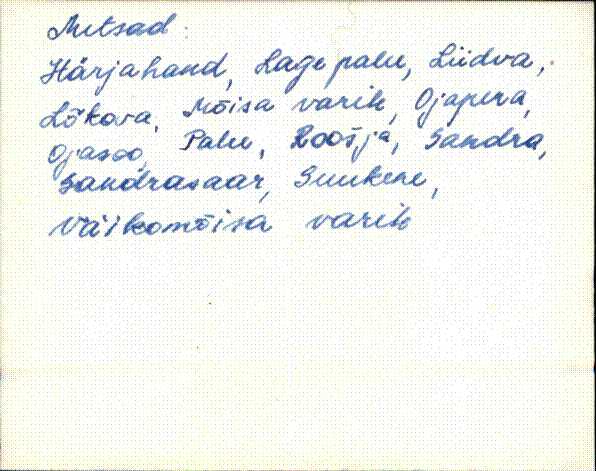 Metsad:
Härjahand, Lage palu, Liidva,
Lõkova, Mõisa varik, Ojapera,
Ojasoo, Palu, Roosja, Sandra,
Sandrasaar, Suukene,
Väikomõisa varik